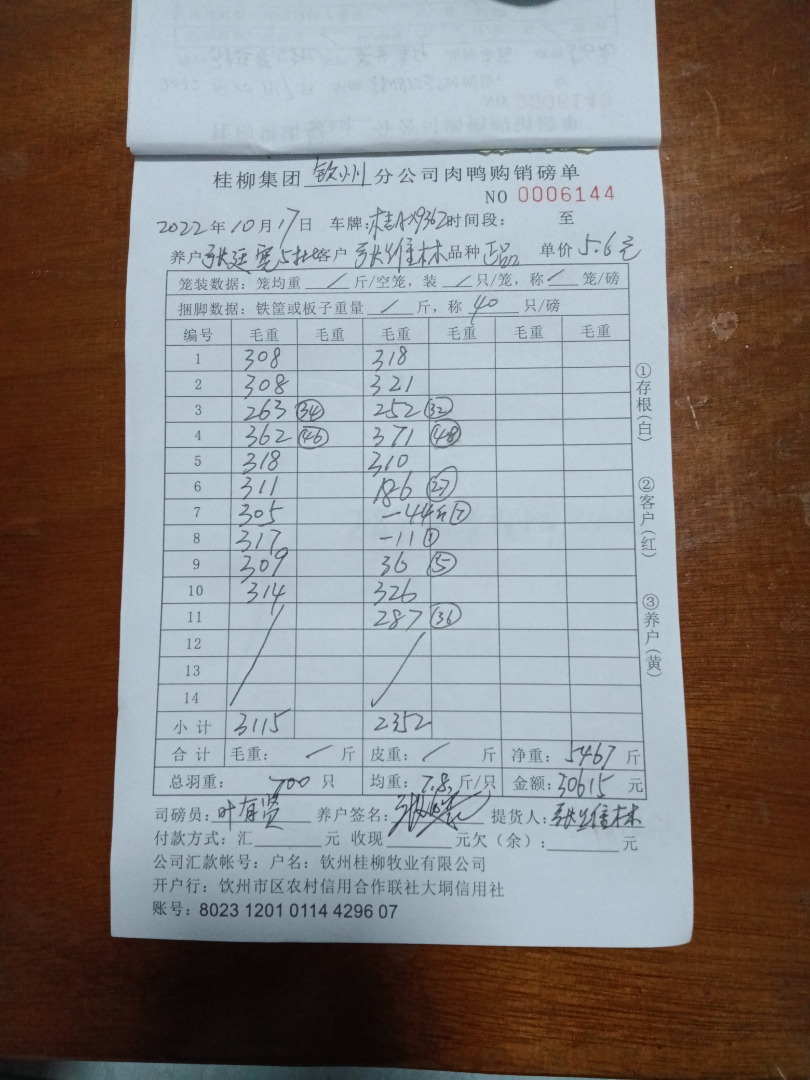 桂柳集团 钦州 分公司肉鸭购销磅单
NO 0006144
2022年10月17日 车牌:桂AX9362时间段: 至
养户 张廷宽5批 客户 张维林 品种 正品 单价 5.6元
笼装数据: 笼均重 / 斤/空笼, 装 / 只/笼, 称 / 笼/磅
捆脚数据: 铁筐或板子重量 / 斤, 称 40 只/磅
编号 毛重 毛重 毛重 毛重 毛重 毛重
1 308 318
2 308 321
3 263 (34) 252 (32)
4 362 (46) 371 (48)
5 318 310
6 311 186 (27)
7 305 -44斤 (7)
8 317 -11 (1)
9 309 36 (5)
10 314 326
11 287 (36)
12
13
14
小计 3115 2352
合计 毛重: / 斤 皮重: / 斤 净重: 5467 斤
总羽重: 700 只 均重: 7.8 斤/只 金额: 30615 元
司磅员: 叶有贤 养户签名: 提货人: 张维林
付款方式: 汇 元 收现 元欠(余): 元
公司汇款帐号: 户名: 钦州桂柳牧业有限公司
开户行: 饮州市区农村信用合作联社大垌信用社
账号: 8023 1201 0114 4296 07
①存根(白)
②客户(红)
③养户(黄)